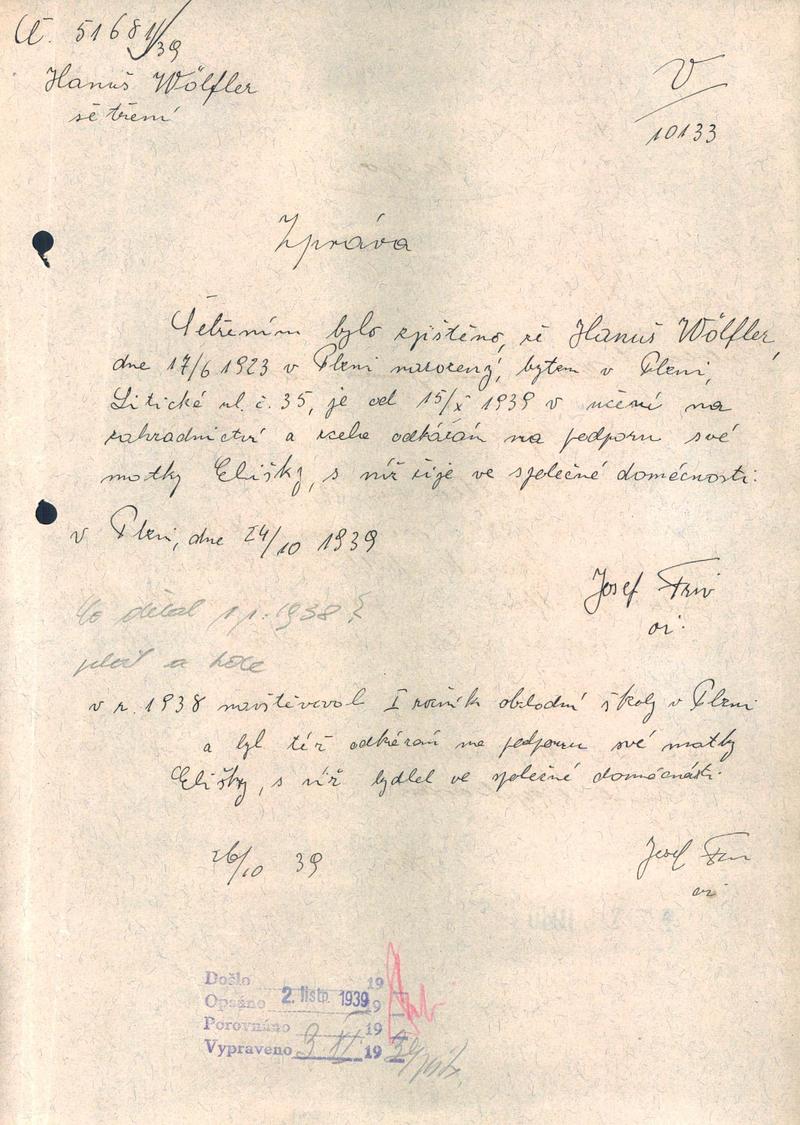 Čč. 51681/39
Hanuš Wölfler
šetření
V
10133
Zpráva
Šetřením bylo zjištěno, že Hanuš Wölfler,
dne 17/6 1923 v Plzni narozený, bytem v Plzni,
Litická ul. č. 35, je od 15/X 1939 v učení na
zahradnictví a zcela odkázán na podporu své
matky Elišky, s níž žije ve společné domácnosti.
v Plzni, dne 24/10 1939
Josef
Co dělal v r. 1938?
a kde
v r. 1938 navštěvoval I ročník obchodní školy v Plzni
a byl též odkázán na podporu své matky
Elišky, s níž bydlel ve společné domácnosti.
26/10 39
Josef
Došlo 19
Opsáno 2. listp. 1939 19
Porovnáno 19
Vypraveno 3 XI 19 39